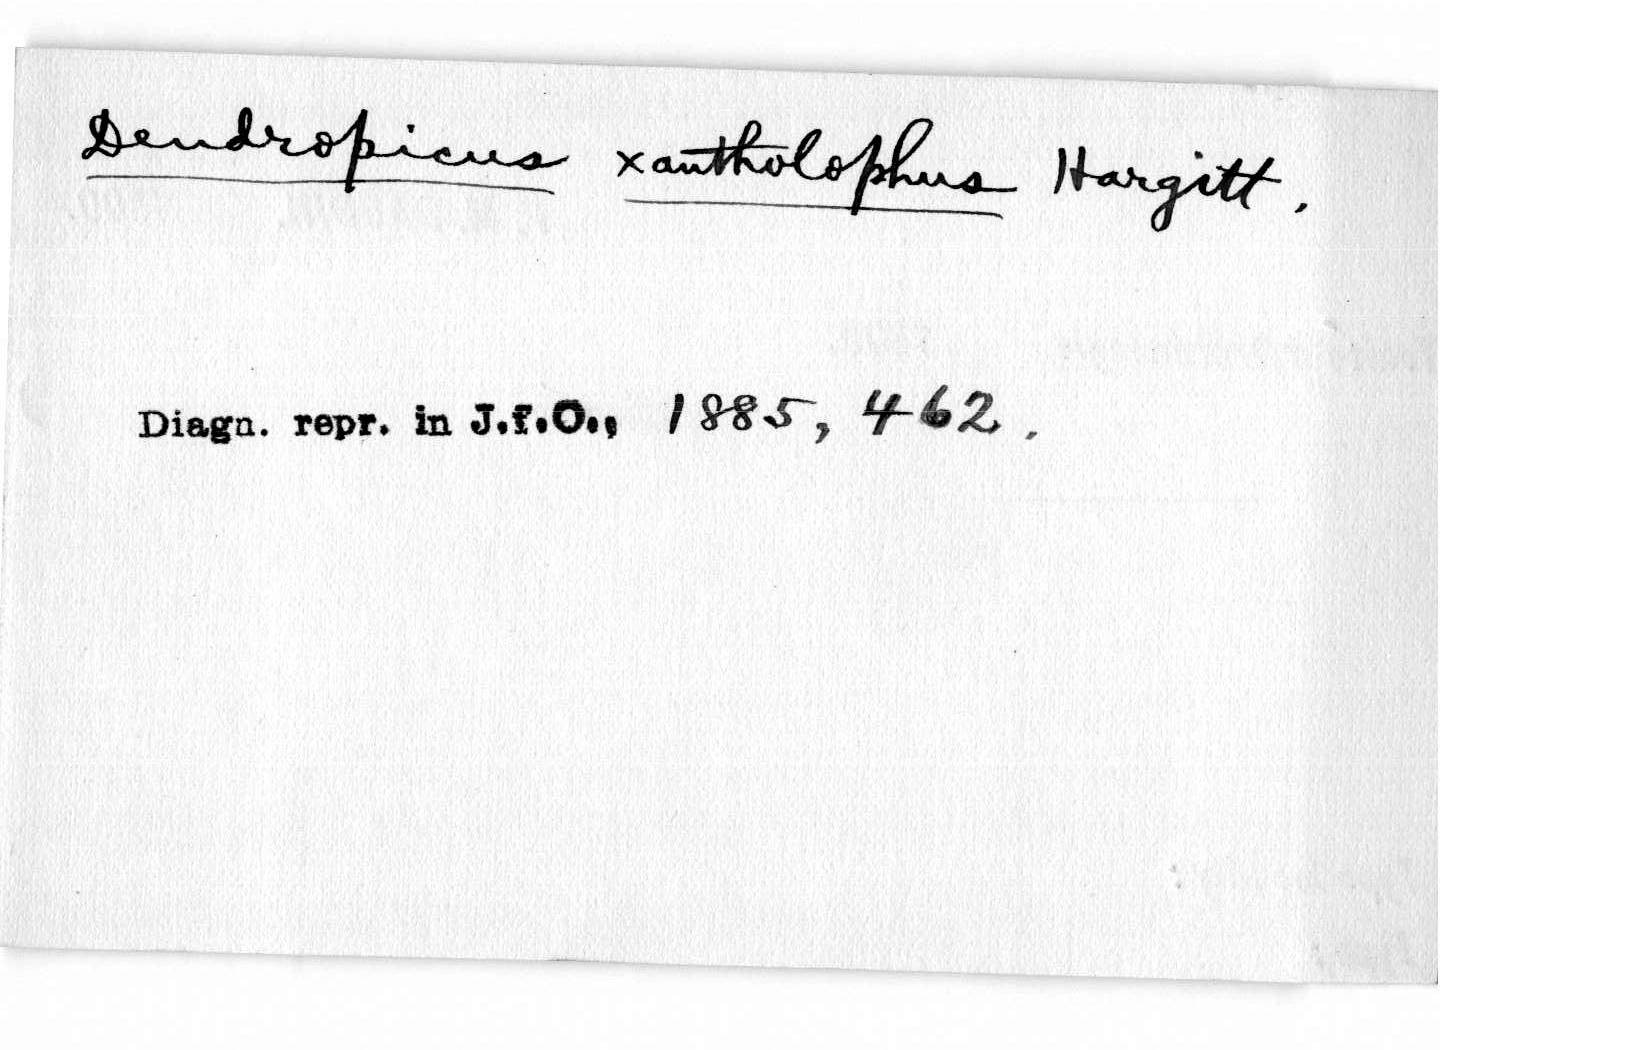 Dendropicus xantholophus Hargitt.
Diagn. repr. in J.f.O., 1885, 462.